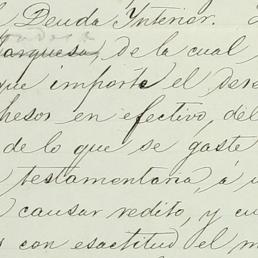 Deuda Ynterior.
Marquesa, de la cual
que importe el dere
hesor en efectivo, del
de lo que se gaste
testamentaria, á
causar redito, y cu
con esactitud el m